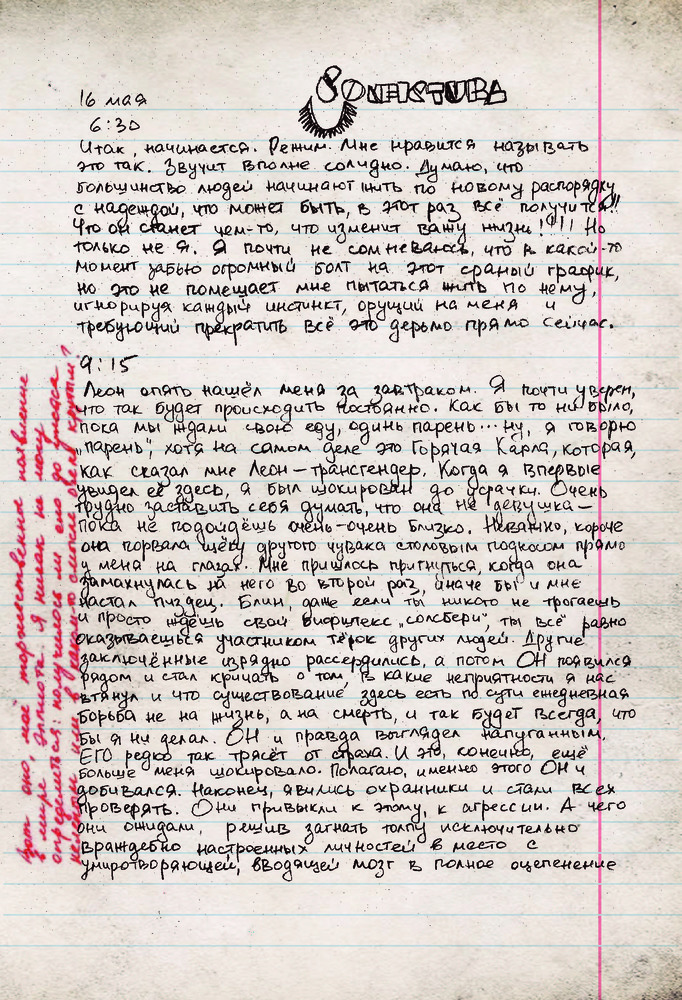 16 мая
6:30
Итак, начинается. Режим. Мне нравится называть
это так. Звучит вполне солидно. Думаю, что
большинство людей начинают жить по новому распорядку
с надеждой, что может быть, в этот раз всё получится!!!
Что он станет чем-то, что изменит вашу жизнь!!!!! Но
только не я. Я почти не сомневаюсь, что в какой-то
момент забью огромный болт на этот сраный график,
но это не помешает мне пытаться жить по нему,
игнорируя каждый инстинкт, орущий на меня и
требующий прекратить всё это дерьмо прямо сейчас.
9:15
Леон опять нашёл меня за завтраком. Я почти уверен,
что так будет происходить постоянно. Как бы то ни было,
пока мы ждали свою еду, один парень... ну, я говорю
„парень", хотя на самом деле это Горячая Карла, которая,
как сказал мне Леон – трансгендер. Когда я впервые
увидел её здесь, я был шокирован до усрачки. Очень
трудно заставить себя думать, что она не девушка –
пока не подойдёшь очень-очень близко. Неважно, короче
она порвала щёку другого чувака столовым подносом прямо
у меня на глазах. Мне пришлось пригнуться, когда она
замахнулась на него во второй раз, иначе бы и мне
настал пиздец. Блин, даже если ты никого не трогаешь
и просто ждёшь свой бифштекс „солсбери", ты всё равно
оказываешься участником тёрок других людей. Другие
заключённые изрядно рассердились, а потом ОН появился
рядом и стал кричать о том, в какие неприятности я нас
втянул и что существование здесь есть по сути ежедневная
борьба не на жизнь, а на смерть, и так будет всегда, что
бы я ни делал. ОН и правда выглядел напуганным.
ЕГО редко так трясёт от страха. И это, конечно, ещё
больше меня шокировало. Полагаю, именно этого ОН и
добивался. Наконец, явились охранники и стали всех
проверять. Они привыкли к этому, к агрессии. А чего
они ожидали, решив загнать толпу исключительно
враждебно настроенных личностей в место с
умиротворяющей, вводящей мозг в полное оцепенение
Вот оно, моё торжественное появление
в мире Эллиота. Я никак не могу
определиться: получилось ли его до ужаса
нелепым или в какой-то степени даже крутым?